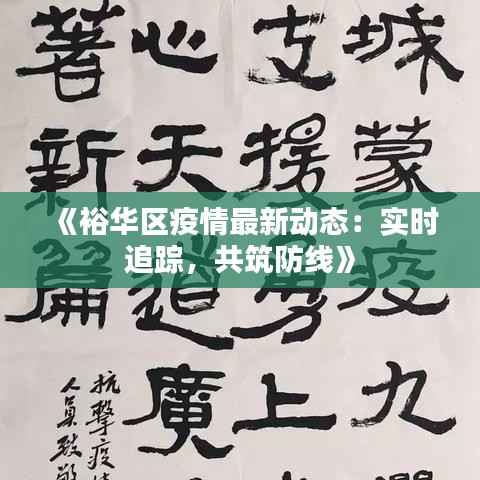 城蒙疫九
支援勇上
心天道廣
著新篇
抗擊疫情
人員致敬
《裕华区疫情最新动态：实时
追踪，共筑防线》